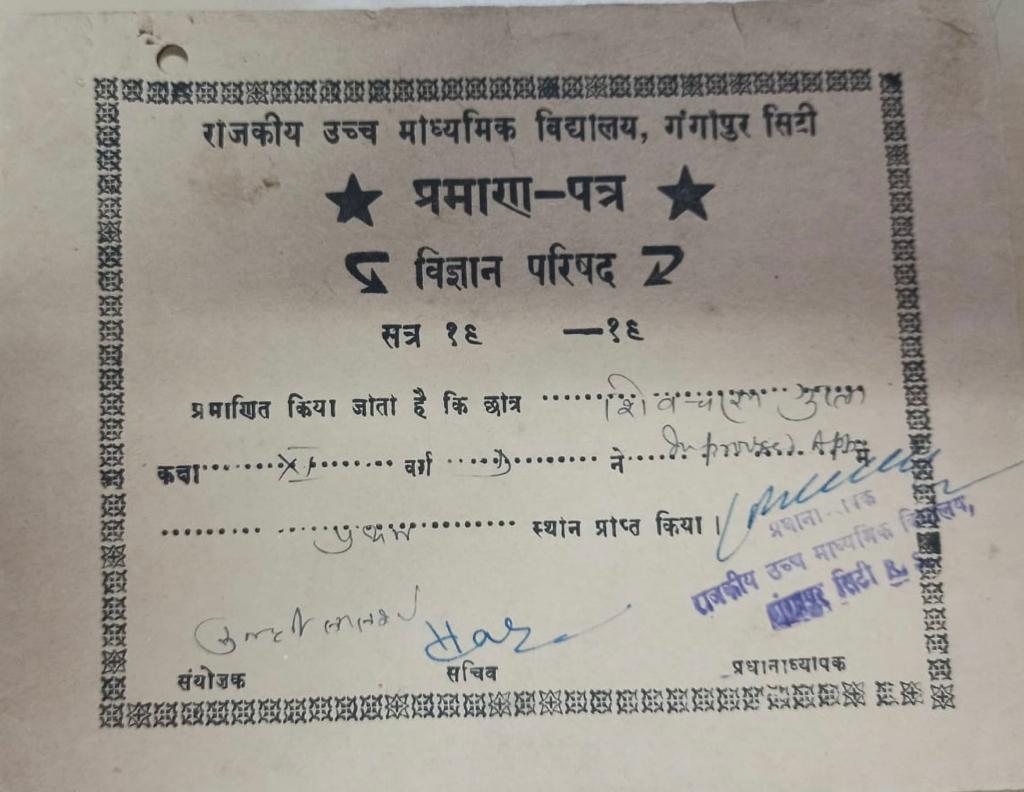 राजकीय उच्च माध्यमिक विद्यालय, गंगापुर सिटी
प्रमाण-पत्र
विज्ञान परिषद
सत्र १९ —१९
प्रमाणित किया जाता है कि छात्र शिव चरण गुप्ता
कक्षा XI वर्ग ने Improvised. App में
प्रथम स्थान प्राप्त किया।
राजकीय उच्च माध्यमिक विद्यालय,
गंगापुर सिटी
संयोजक सचिव प्रधानाध्यापक